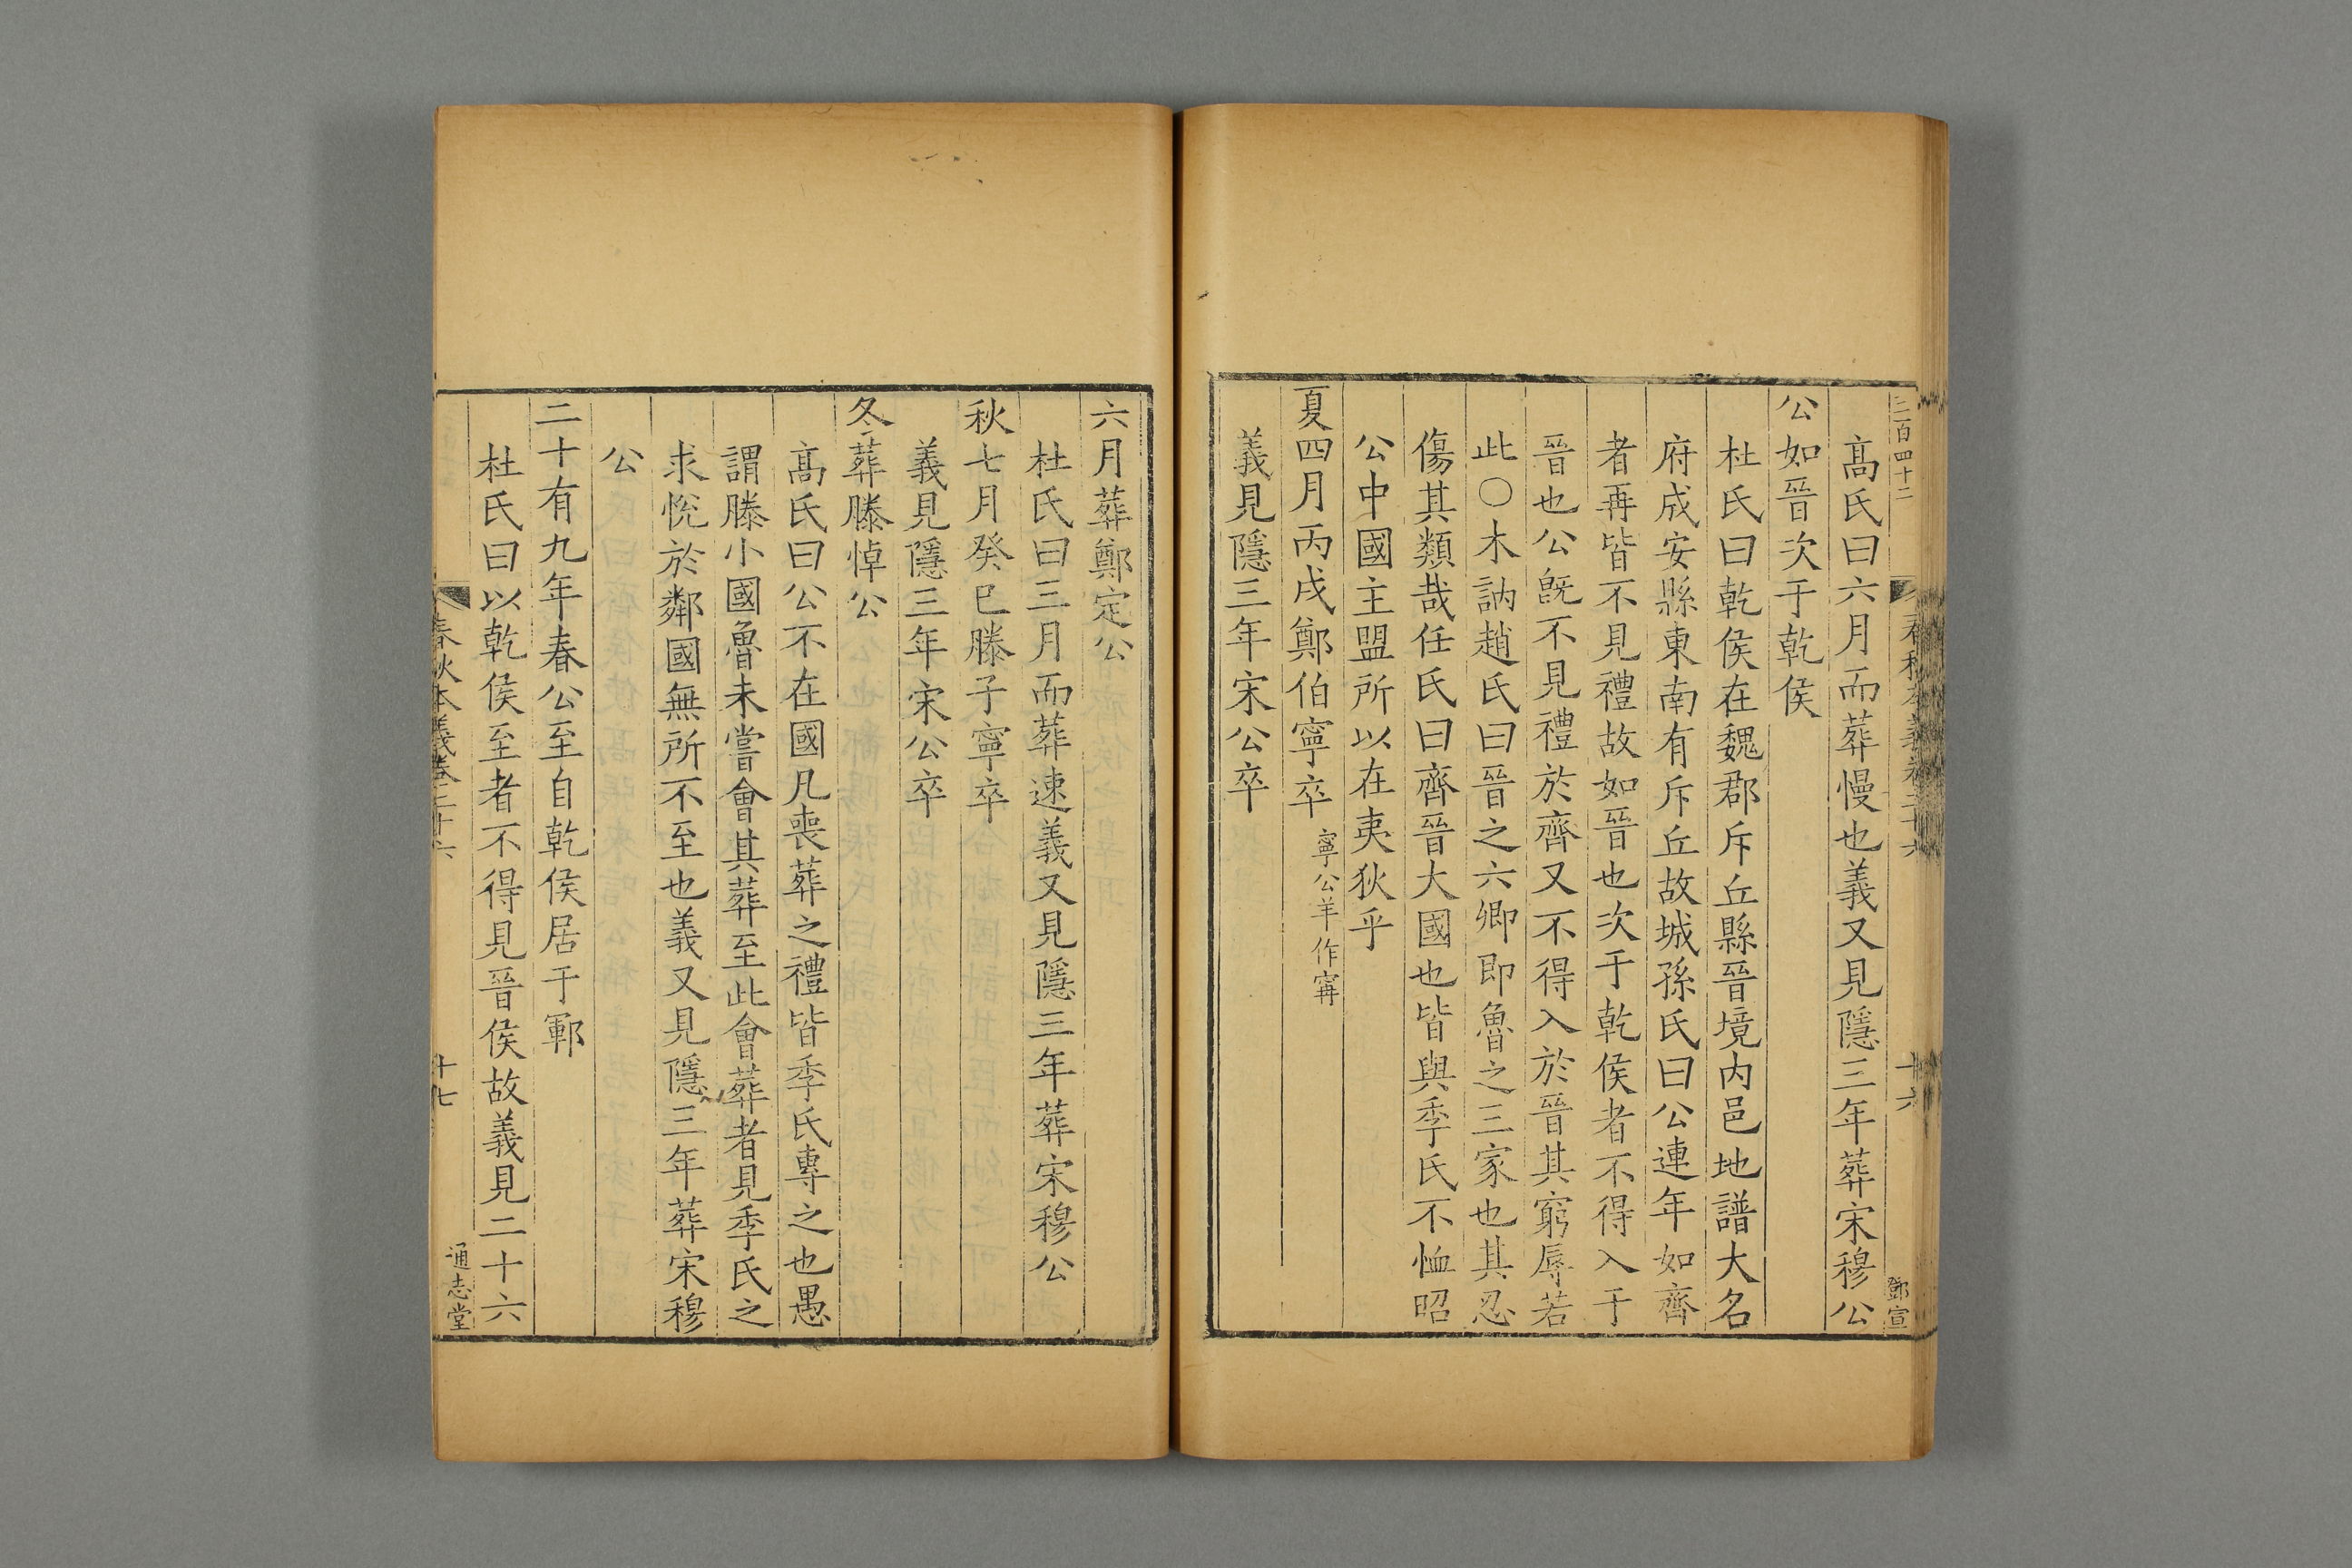 二百四十二
春秋本義卷二十六
十六
鄧宣
髙氏曰六月而葬慢也義又見隱三年葬宋穆公
公如晉次于乾侯
杜氏曰乾侯在魏郡斥丘縣晉境内邑地譜大名
府成安縣東南有斥丘故城孫氏曰公連年如齊
者再皆不見禮故如晉也次于乾侯者不得入于
晉也公旣不見禮於齊又不得入於晉其窮辱若
此○木訥趙氏曰晉之六卿即魯之三家也其忍
傷其類哉任氏曰齊晉大國也皆與季氏不恤昭
公中國主盟所以在夷狄乎
夏四月丙戌鄭伯寧卒 寧公羊作甯
義見隱三年宋公卒
六月葬鄭定公
杜氏曰三月而葬速義又見隱三年葬宋穆公
秋七月癸巳滕子寧卒
義見隱三年宋公卒
冬葬滕悼公
髙氏曰公不在國凡喪葬之禮皆季氏專之也愚
謂滕小國魯未嘗會其葬至此會葬者見季氏之
求悅於鄰國無所不至也義又見隱三年葬宋穆
公
二十有九年春公至自乾侯居于鄆
杜氏曰以乾侯至者不得見晉侯故義見二十六
春秋本義卷二十六
十七
通志堂